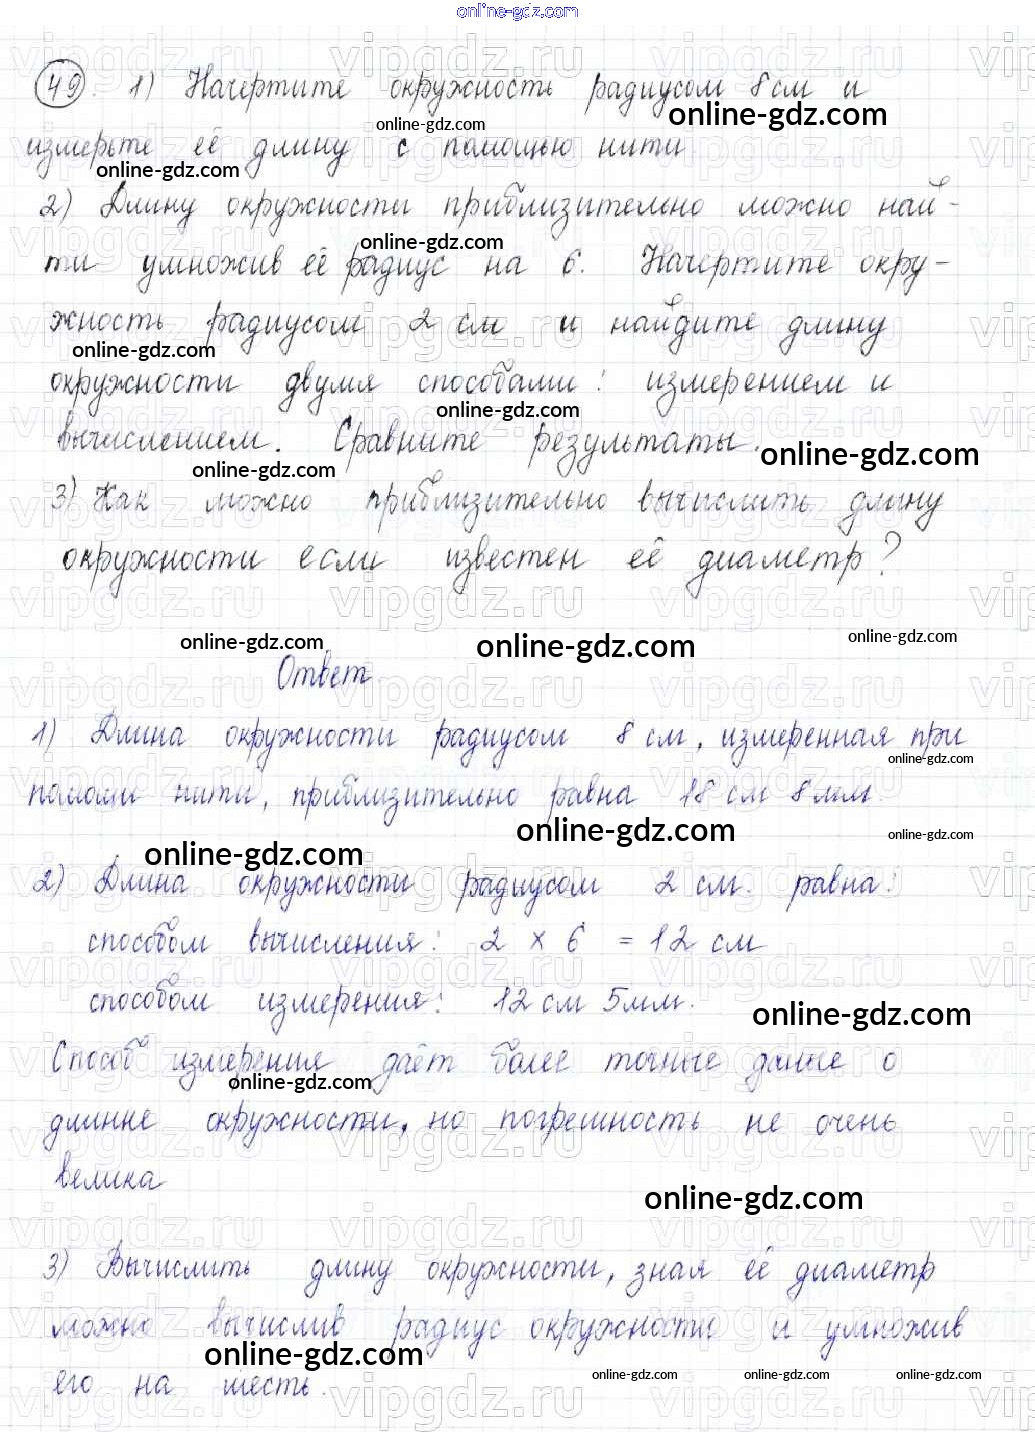 online-gdz.com
49. 1) Начертите окружность радиусом 8 см и
online-gdz.com
online-gdz.com
измерьте её длину с помощью нити
online-gdz.com
2) Длину окружности приблизительно можно най-
online-gdz.com
ти умножив её радиус на 6. Начертите окру-
жность радиусом 2 см и найдите длину
online-gdz.com
окружности двумя способами: измерением и
online-gdz.com
вычислением. Сравните результаты.
online-gdz.com
online-gdz.com
3) Как можно приблизительно вычислить длину
окружности если известен её диаметр?
online-gdz.com
online-gdz.com
online-gdz.com
Ответ
1) Длина окружности радиусом 8 см, измеренная при
online-gdz.com
помощи нити, приблизительно равна 18 см 8 мм.
online-gdz.com
online-gdz.com
online-gdz.com
2) Длина окружности радиусом 2 см. равна:
способом вычисления: 2 × 6 = 12 см
способом измерения: 12 см 5 мм.
online-gdz.com
Способ измерения даёт более точные даные о
online-gdz.com
длинне окружности, но погрешность не очень
велика
online-gdz.com
3) Вычислить длину окружности, зная её диаметр
можно вычислив радиус окружности и умножив
online-gdz.com
его на шесть.
online-gdz.com
online-gdz.com
online-gdz.com
vipgdz.ru